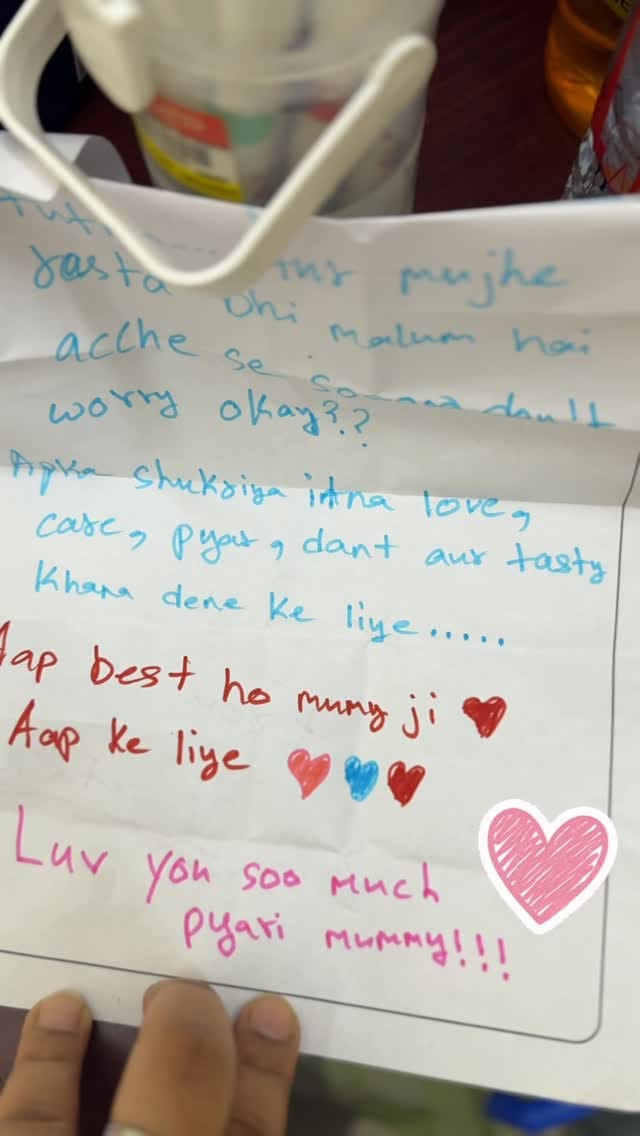 mujhe
rasta bhi malum hai
acche se don't
worry okay??
Apka shukriya itna love,
care, pyar, dant aur tasty
khana dene ke liye.....
Aap best ho mumy ji ♥
Aap ke liye ♥ ♥ ♥
Luv you soo much
pyari mummy!!!